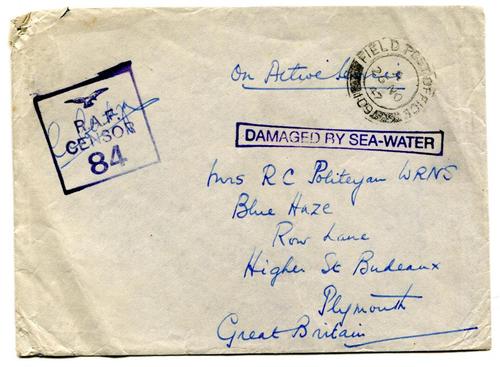 On Active Service
FIELD POST OFFICE
601
R.A.F.
CENSOR
84
DAMAGED BY SEA-WATER
Mrs R C Politeyan WRNS
Blue Haze
Row Lane
Higher St Budeaux
Plymouth
Great Britain